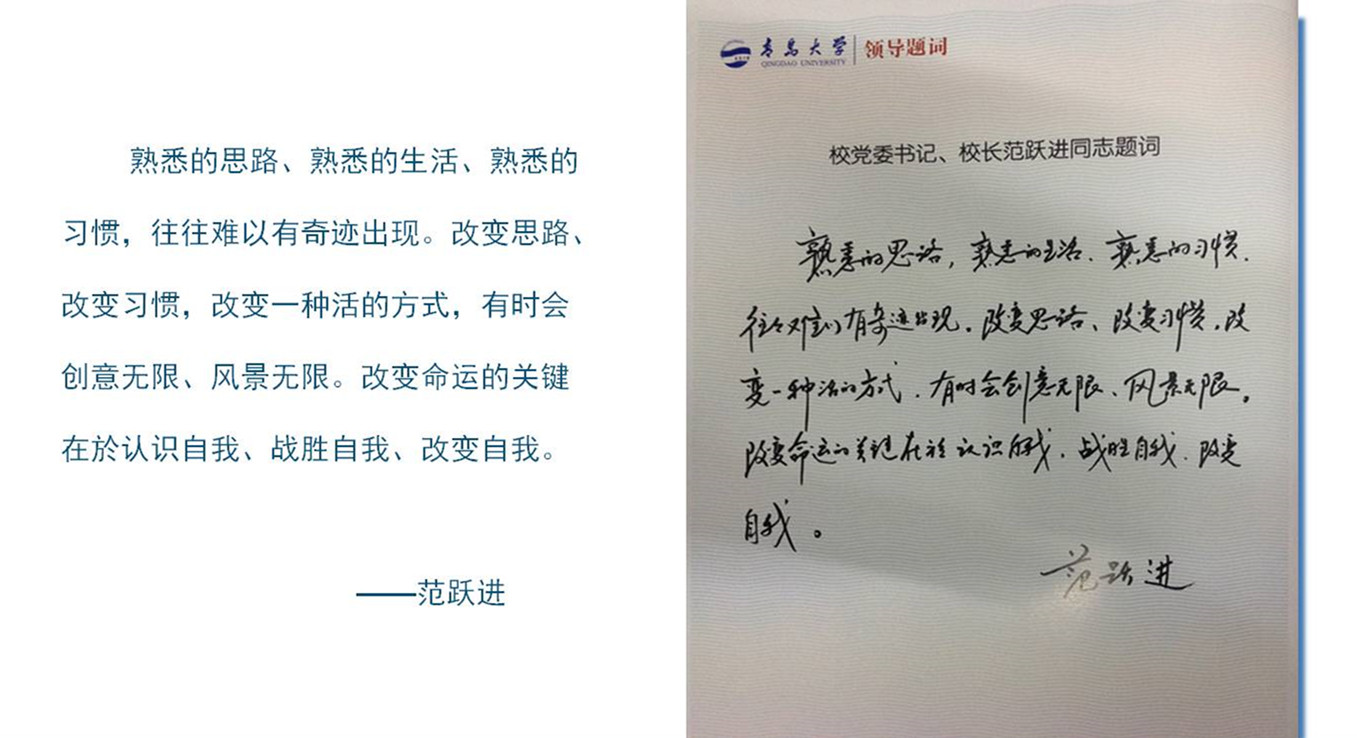 熟悉的思路、熟悉的生活、熟悉的
习惯，往往难以有奇迹出现。改变思路、
改变习惯，改变一种活的方式，有时会
创意无限、风景无限。改变命运的关键
在於认识自我、战胜自我、改变自我。
——范跃进
青岛大学 领导题词
QINGDAO UNIVERSITY
校党委书记、校长范跃进同志题词
熟悉的思路，熟悉的生活、熟悉的习惯、
往々难以有奇迹出现。改变思路、改变习惯，改
变一种活的方式，有时会创意无限、风景无限。
改变命运的关键在於认识自我，战胜自我、改变
自我。
范跃进